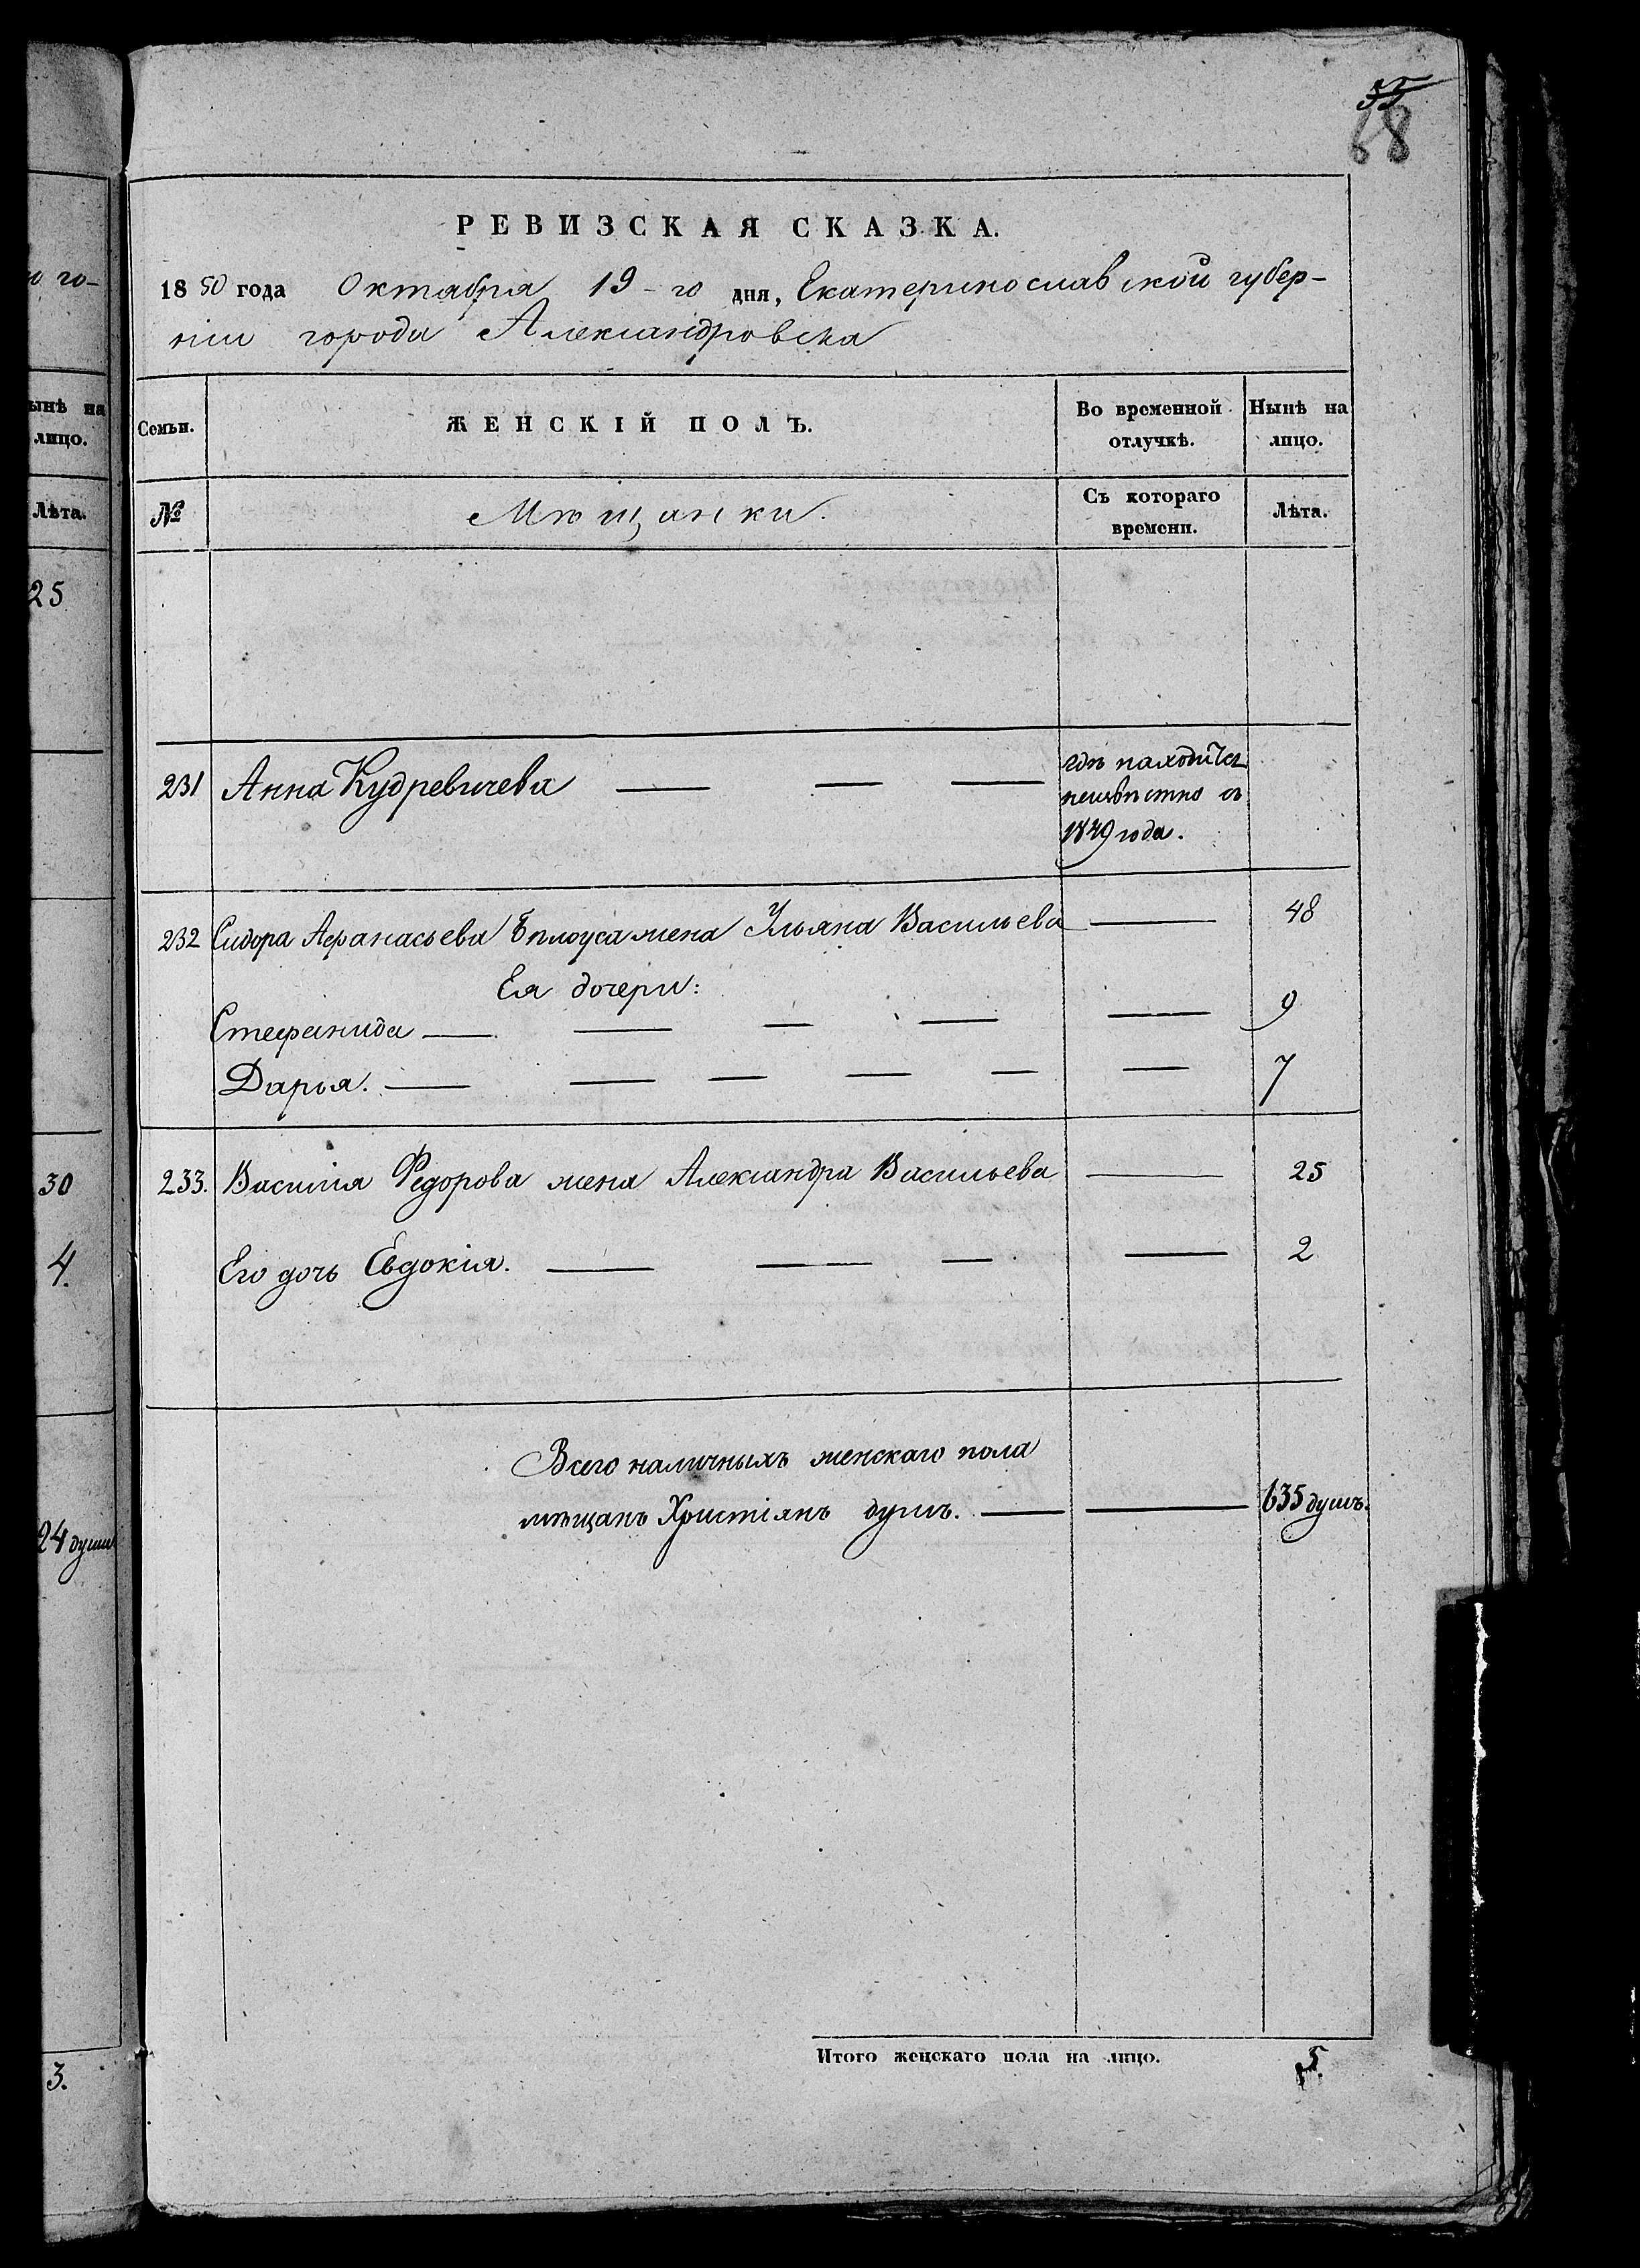 55
68
РЕВИЗСКАЯ СКАЗКА.
1850 года Октября 19-го дня, Екатеринославской губер-
ніи города Александровска
Семьи.
ЖЕНСКІЙ ПОЛЪ.
Во временной
отлучкѣ.
Нынѣ на
лицо.
№
Мѣщанки.
Съ котораго
времени.
Лѣта.
231 Анна Кудревичева
гдѣ находится
неизвѣстно съ
1849 года.
232 Сидора Афанасьева Бѣлоуса жена Ульяна Васильева 48
Ея дочери:
Стефанида 9
Дарья. 7
233. Василія Федорова жена Александра Васильева 25
Его дочь Евдокія. 2
Всего наличныхъ женскаго пола
мѣщанъ Христіянъ душъ. 635 душъ.
Итого женскаго пола на лицо. 5.
го-
ынѣ на
лицо.
Лѣта.
25
30
4.
24 души
3.